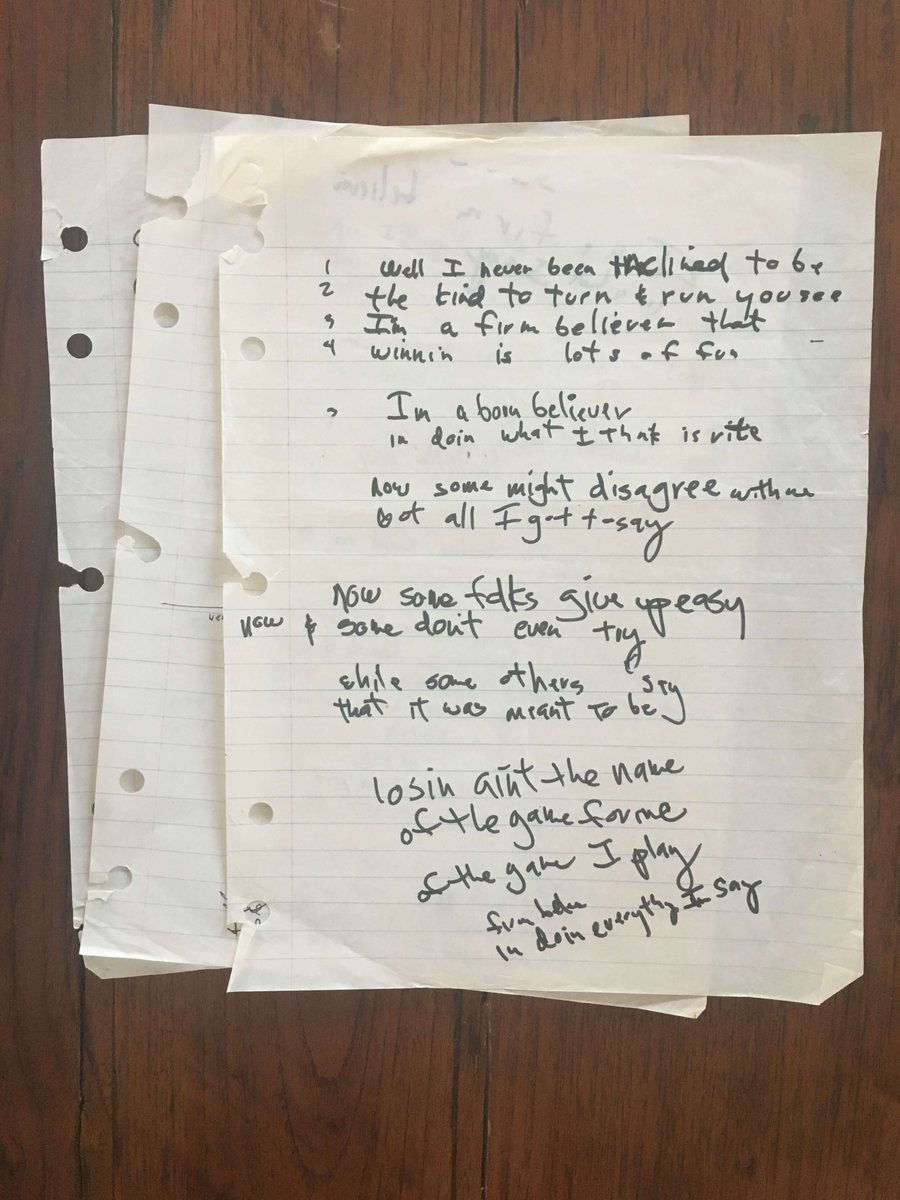 believin
firm
1 Well I never been inclined to be
2 the kind to turn & run you see
3 I'm a firm believer that
4 winnin is lots of fun
I'm a born believer
in doin what I think is rite
now some might disagree with me
but all I got t say
Now some folks give up easy
now & some don't even try
while some others say
that it was meant to be
losin aint the name
of the game for me
of the game I play
firm
in doin everythg I say
ver